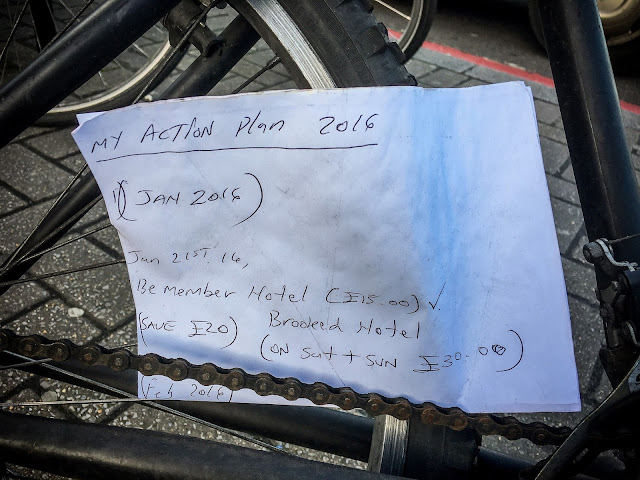 MY ACTION Plan 2016
1) (JAN 2016)
Jan 21ST. 16,
Be member Hotel (£15.00) ✓.
(SAVE £20) Hotel
(ON Sat + SUN £30.00)
(Feb 2016)